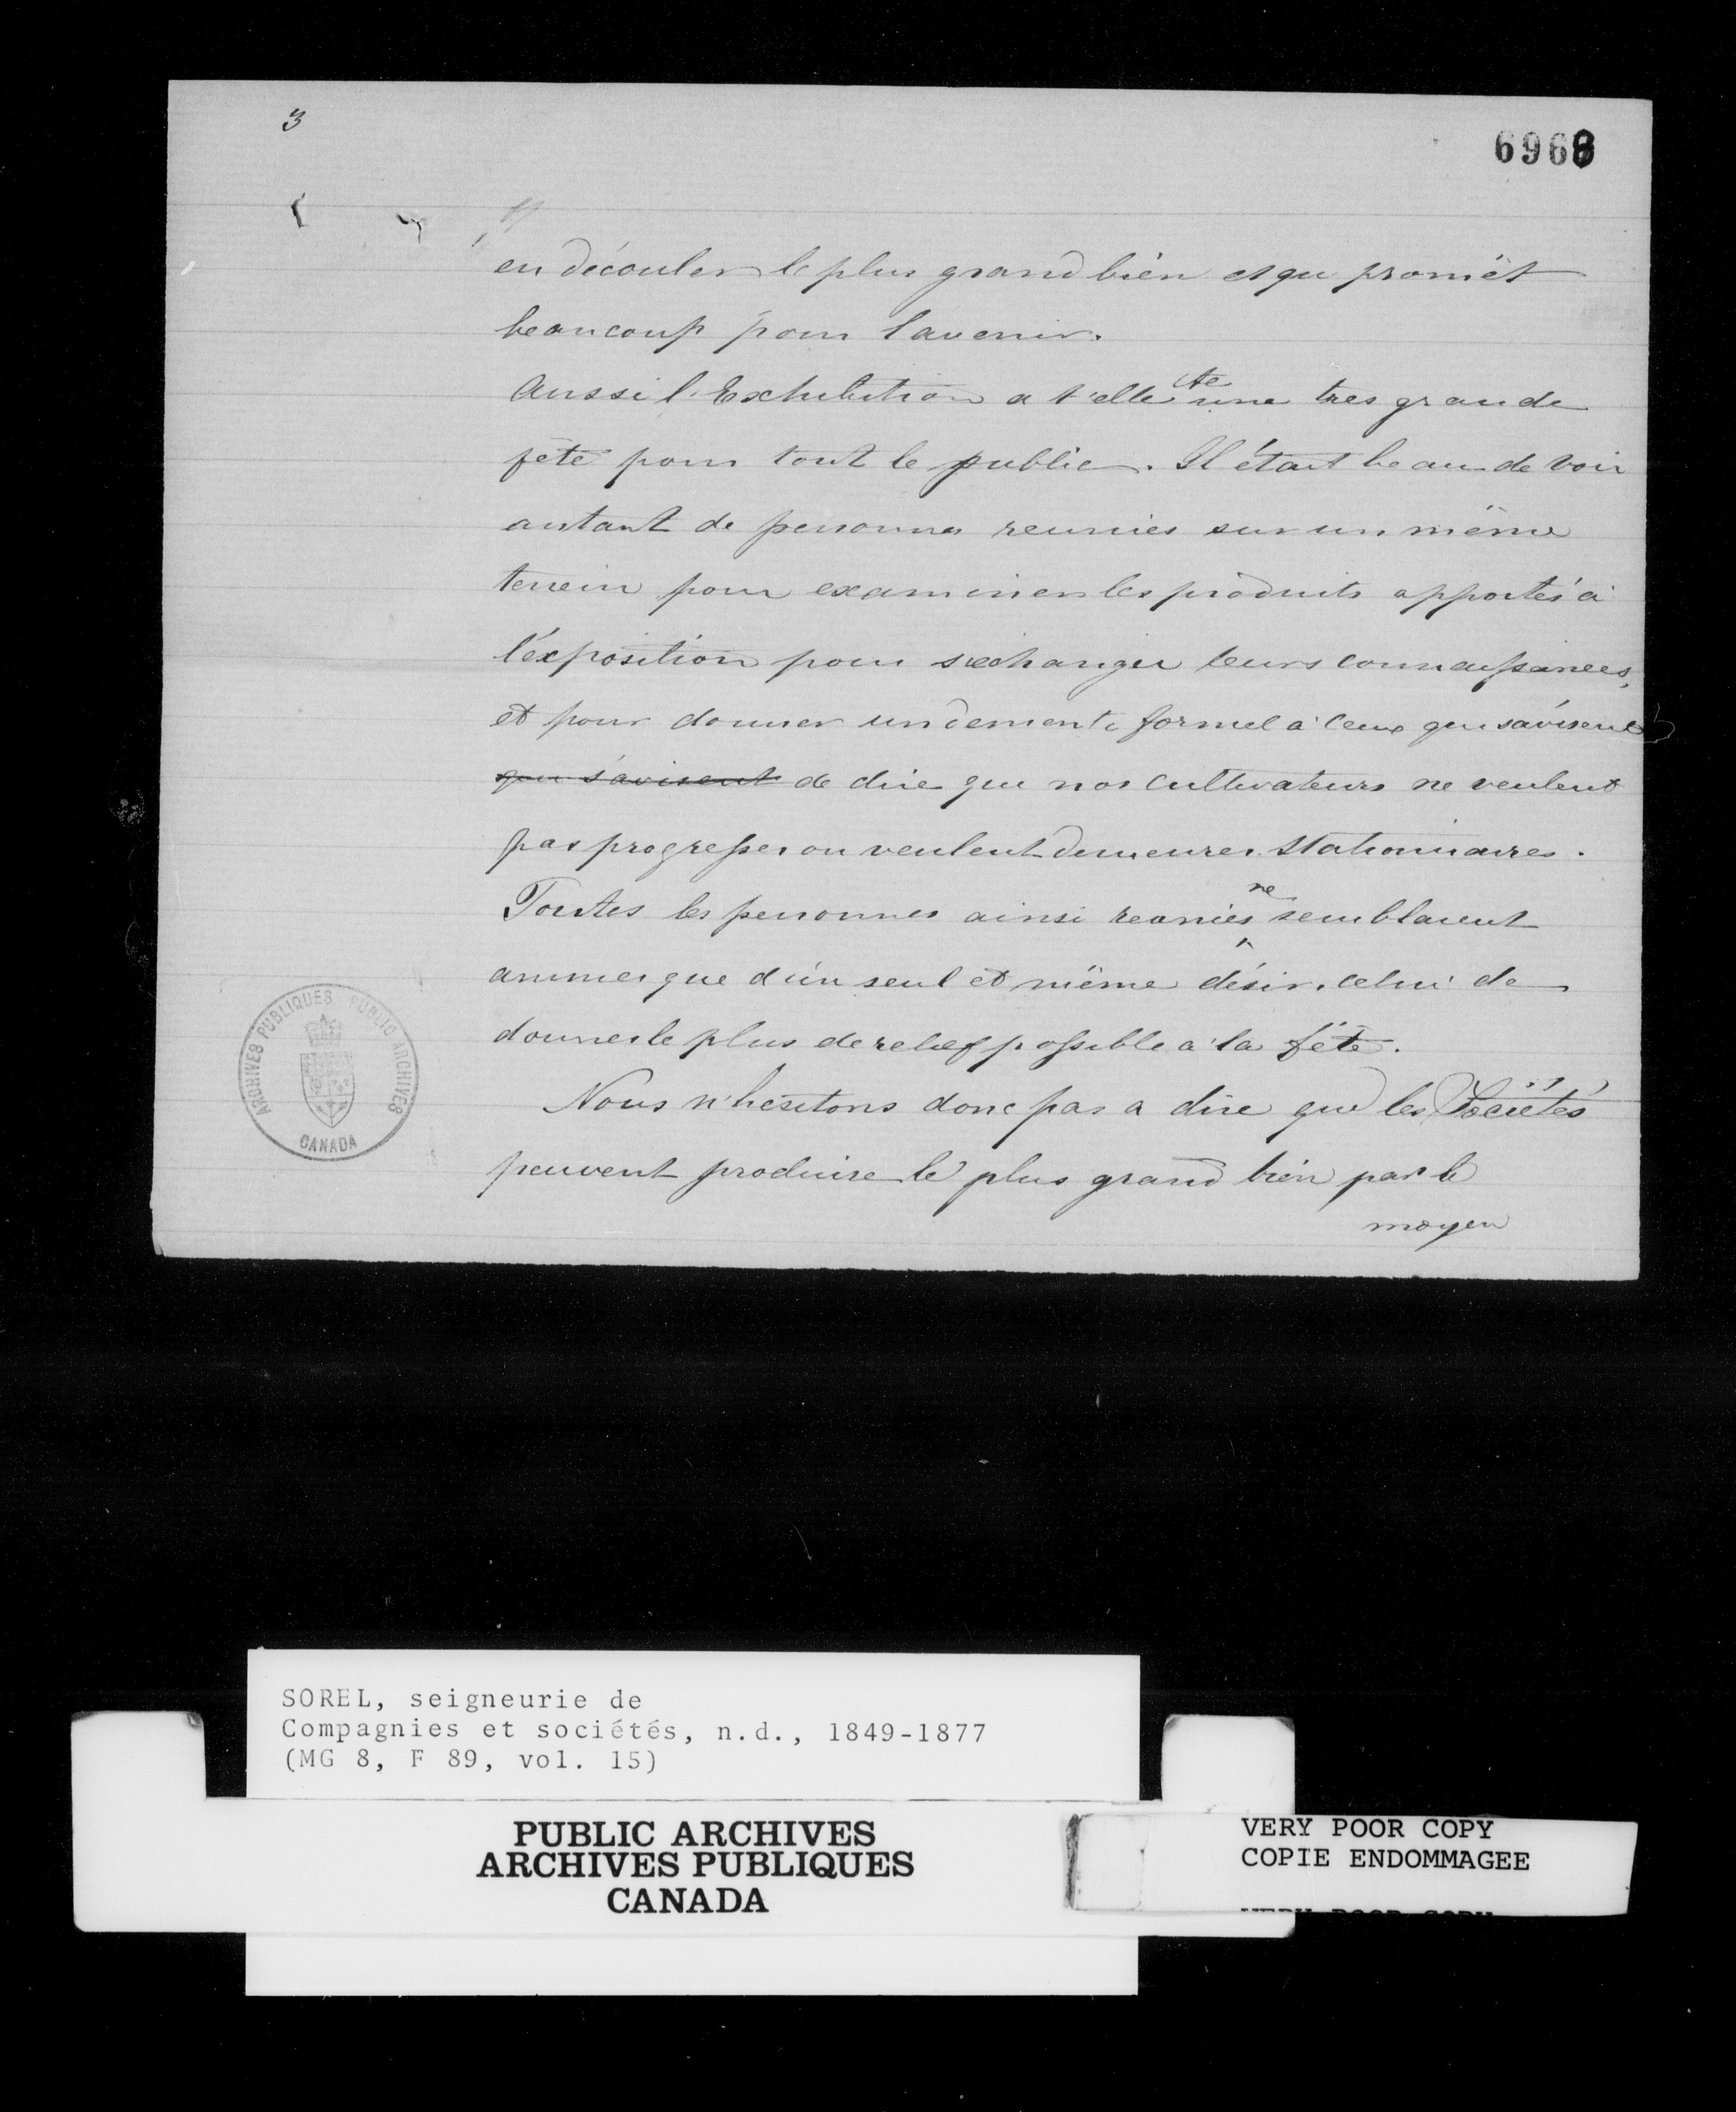 3
6968
en découler le plus grand bien et que promèt
beaucoup pour l'avenir.
Aussi l'Exhibition a t'elle été une tres grande
fête pour tout le public. Il était beau de voir
autant de personnes reunies sur un même
terrein pour examiner les produits apportés à
l'éxposition pour s'echanger leurs connaissances,
et pour donner un dementi formel à ceux qui s'avisent
qui s'avisent de dire que nos cultivateurs ne veulent
pas progresser ou veulent demeurer stationnaires.
Toutes les personnes ainsi reunies ne semblaient
animer que d'un seul et même désir, celui de
donner le plus de relief possible à la fête.
Nous n'hésitons donc pas a dire que les Sociétés
peuvent produire le plus grand bien par le
moyen
ARCHIVES PUBLIQUES PUBLIC ARCHIVES
CANADA
SOREL, seigneurie de
Compagnies et sociétés, n.d., 1849-1877
(MG 8, F 89, vol. 15)
PUBLIC ARCHIVES
ARCHIVES PUBLIQUES
CANADA
VERY POOR COPY
COPIE ENDOMMAGEE
VERY POOR COPY